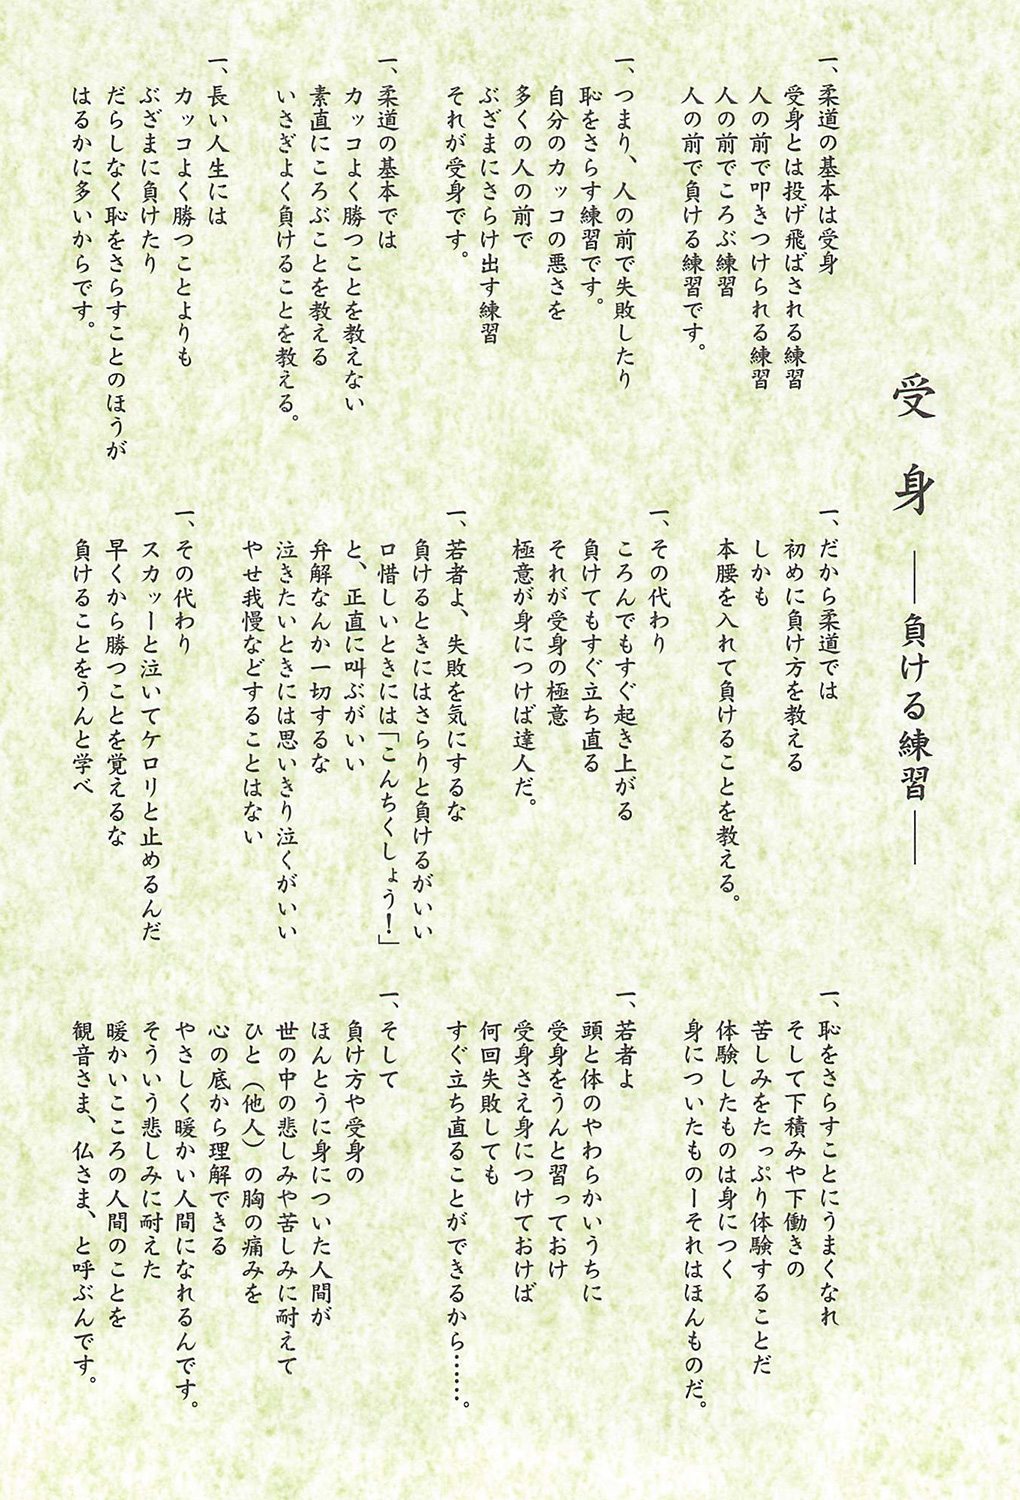 受身 ――負ける練習――
一、柔道の基本は受身
受身とは投げ飛ばされる練習
人の前で叩きつけられる練習
人の前でころぶ練習
人の前で負ける練習です。
一、つまり、人の前で失敗したり
恥をさらす練習です。
自分のカッコの悪さを
多くの人の前で
ぶざまにさらけ出す練習
それが受身です。
一、柔道の基本では
カッコよく勝つことを教えない
素直にころぶことを教える
いさぎよく負けることを教える。
一、長い人生には
カッコよく勝つことよりも
ぶざまに負けたり
だらしなく恥をさらすことのほうが
はるかに多いからです。
一、だから柔道では
初めに負け方を教える
しかも
本腰を入れて負けることを教える。
一、その代わり
ころんでもすぐ起き上がる
負けてもすぐ立ち直る
それが受身の極意
極意が身につけば達人だ。
一、若者よ、失敗を気にするな
負けるときにはさらりと負けるがいい
口惜しいときには「こんちくしょう！」
と、正直に叫ぶがいい
弁解なんか一切するな
泣きたいときには思いきり泣くがいい
やせ我慢などすることはない
一、その代わり
スカッーと泣いてケロリと止めるんだ
早くから勝つことを覚えるな
負けることをうんと学べ
一、恥をさらすことにうまくなれ
そして下積みや下働きの
苦しみをたっぷり体験することだ
体験したものは身につく
身についたものーそれはほんものだ。
一、若者よ
頭と体のやわらかいうちに
受身をうんと習っておけ
受身さえ身につけておけば
何回失敗しても
すぐ立ち直ることができるから……。
一、そして
負け方や受身の
ほんとうに身についた人間が
世の中の悲しみや苦しみに耐えて
ひと（他人）の胸の痛みを
心の底から理解できる
やさしく暖かい人間になれるんです。
そういう悲しみに耐えた
暖かいこころの人間のことを
観音さま、仏さま、と呼ぶんです。